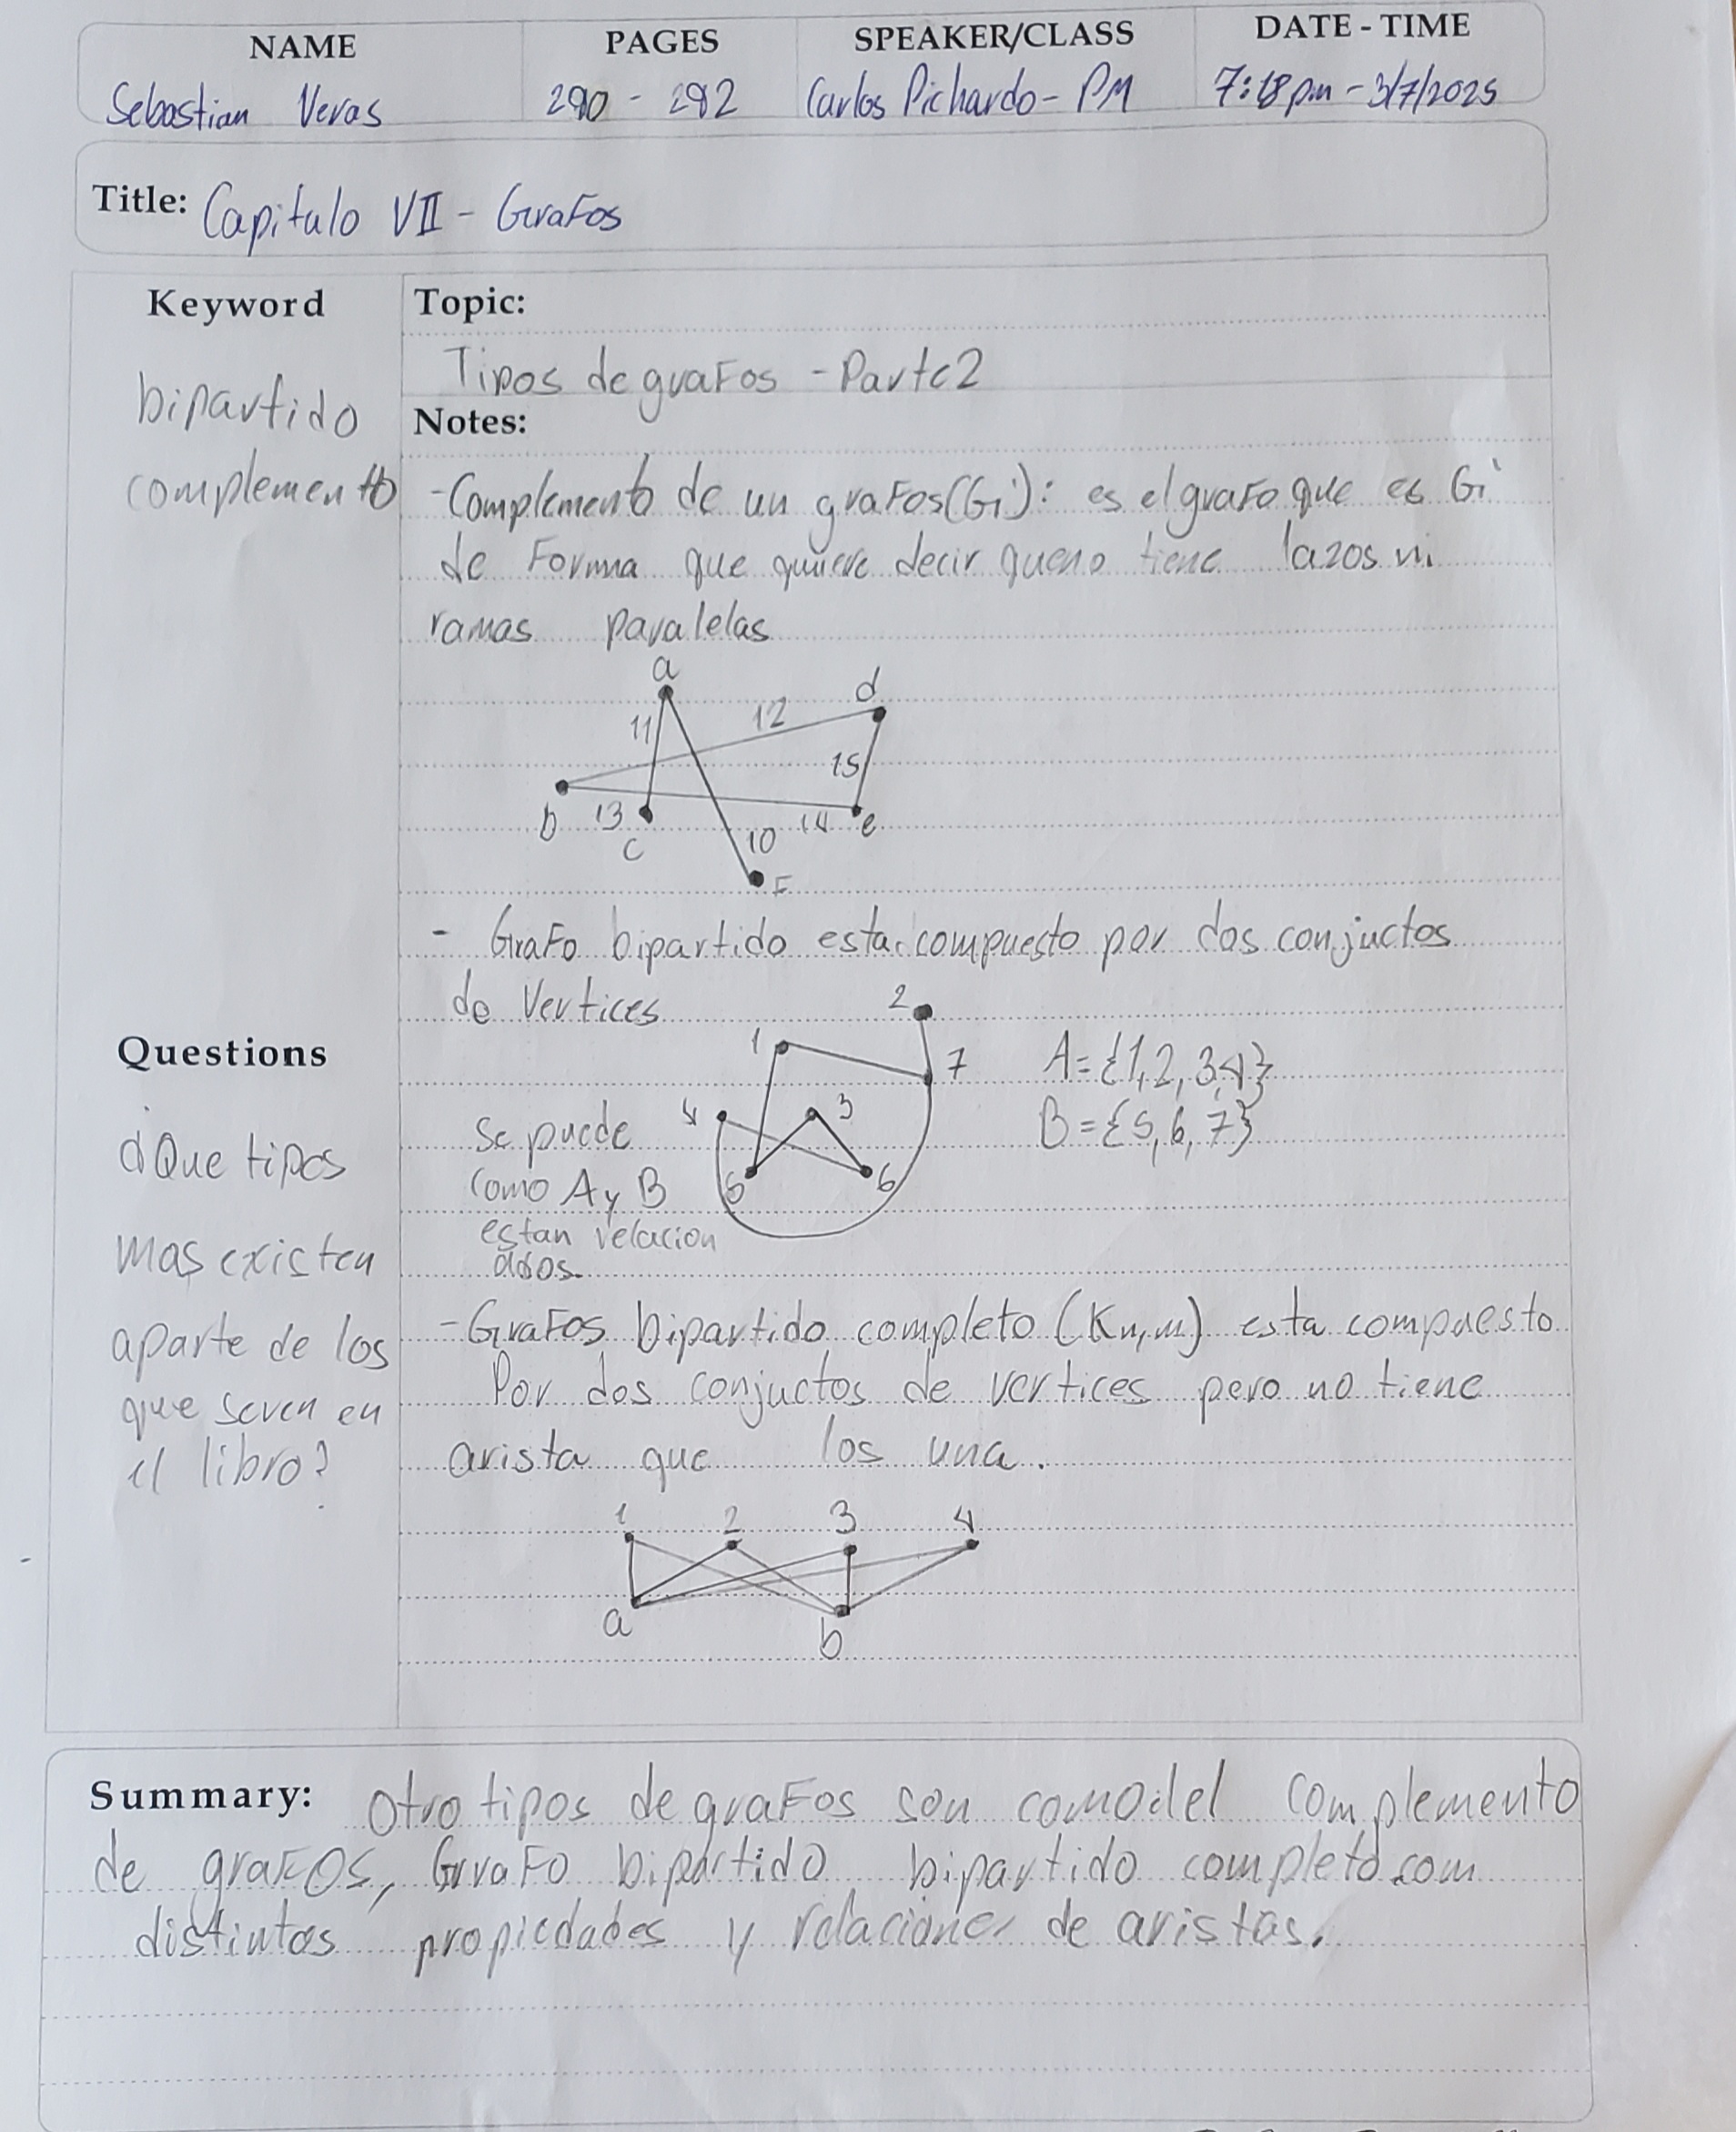 NAME PAGES SPEAKER/CLASS DATE - TIME
Sebastian Veras 290 - 292 Carlos Pichardo - PM 7:18 pm - 3/7/2025
Title: Capitulo VII - Grafos
Keyword
bipartido
complemento
Topic:
Tipos de grafos - Parte 2
Notes:
- Complemento de un grafos (G'): es el grafo que es G'
de Forma que quiere decir que no tiene lazos ni
ramas paralelas
a
d
11
12
15
b 13
c
14 e
10
F
- Grafo bipartido esta compuesto por dos conjuctos
de Vertices
2
1
7
A = {1, 2, 3, 4}
4
3
B = {5, 6, 7}
5
6
Se puede
como A y B
estan relacion
ados.
- Grafos bipartido completo (Kn,m) esta compuesto
Por dos conjuctos de vertices pero no tiene
arista que los una.
1 2 3 4
a
b
Questions
¿Que tipos
mas existen
aparte de los
que seven en
el libro?
Summary: Otro tipos de grafos son como del complemento
de grafos, Grafo bipartido bipartido completo com
distintas propiedades y relaciones de aristas.